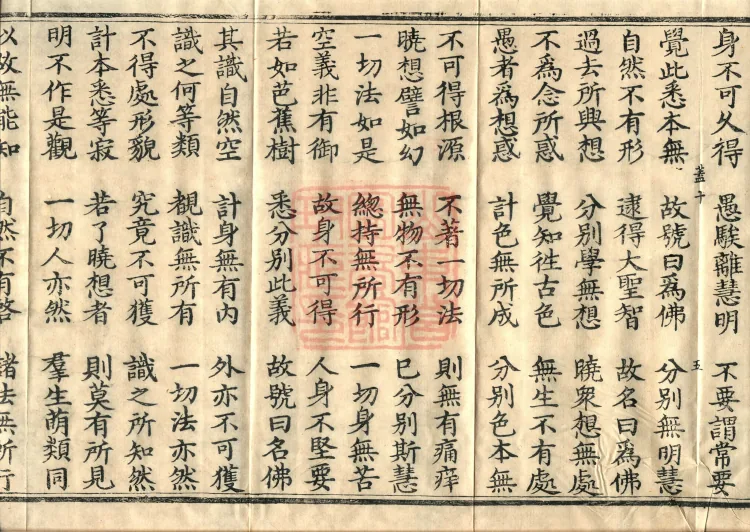 身不可久得 愚騃離慧明 不要謂常要
覺此悉本無 故號曰為佛 分別無明慧
蓋十 五
自然不有形 逮得大聖智 故名曰為佛
過去所興想 分別學無想 曉眾想無處
不為念所惑 覺知徃古色 無生不有處
愚者為想惑 計色無所成 分別色本無
不可得根源 不著一切法 則無有痛痒
曉想譬如幻 無物不有形 已分別斯慧
一切法如是 總持無所行 一切身無苦
空義非有御 故身不可得 人身不堅要
若如芭蕉樹 悉分別此義 故號曰名佛
其識自然空 計身無有內 外亦不可獲
識之何等類 觀識無所有 一切法亦然
不得處形貌 究竟不可獲 識之所知然
計本悉等寂 若了曉想者 則莫有所見
明不作是觀 一切人亦然 羣生萌類同
以故無能知 自然不有 諸法無所行